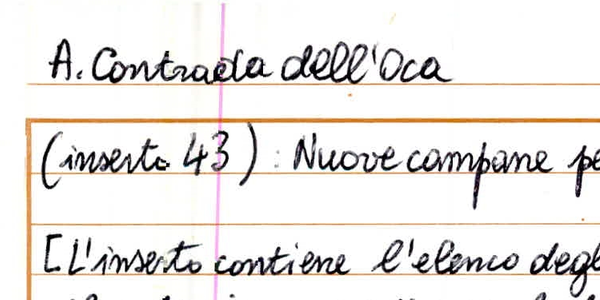 A. Contrada dell'Oca
(inserto 43): Nuove campane pe
[L'inserto contiene l'elenco degl